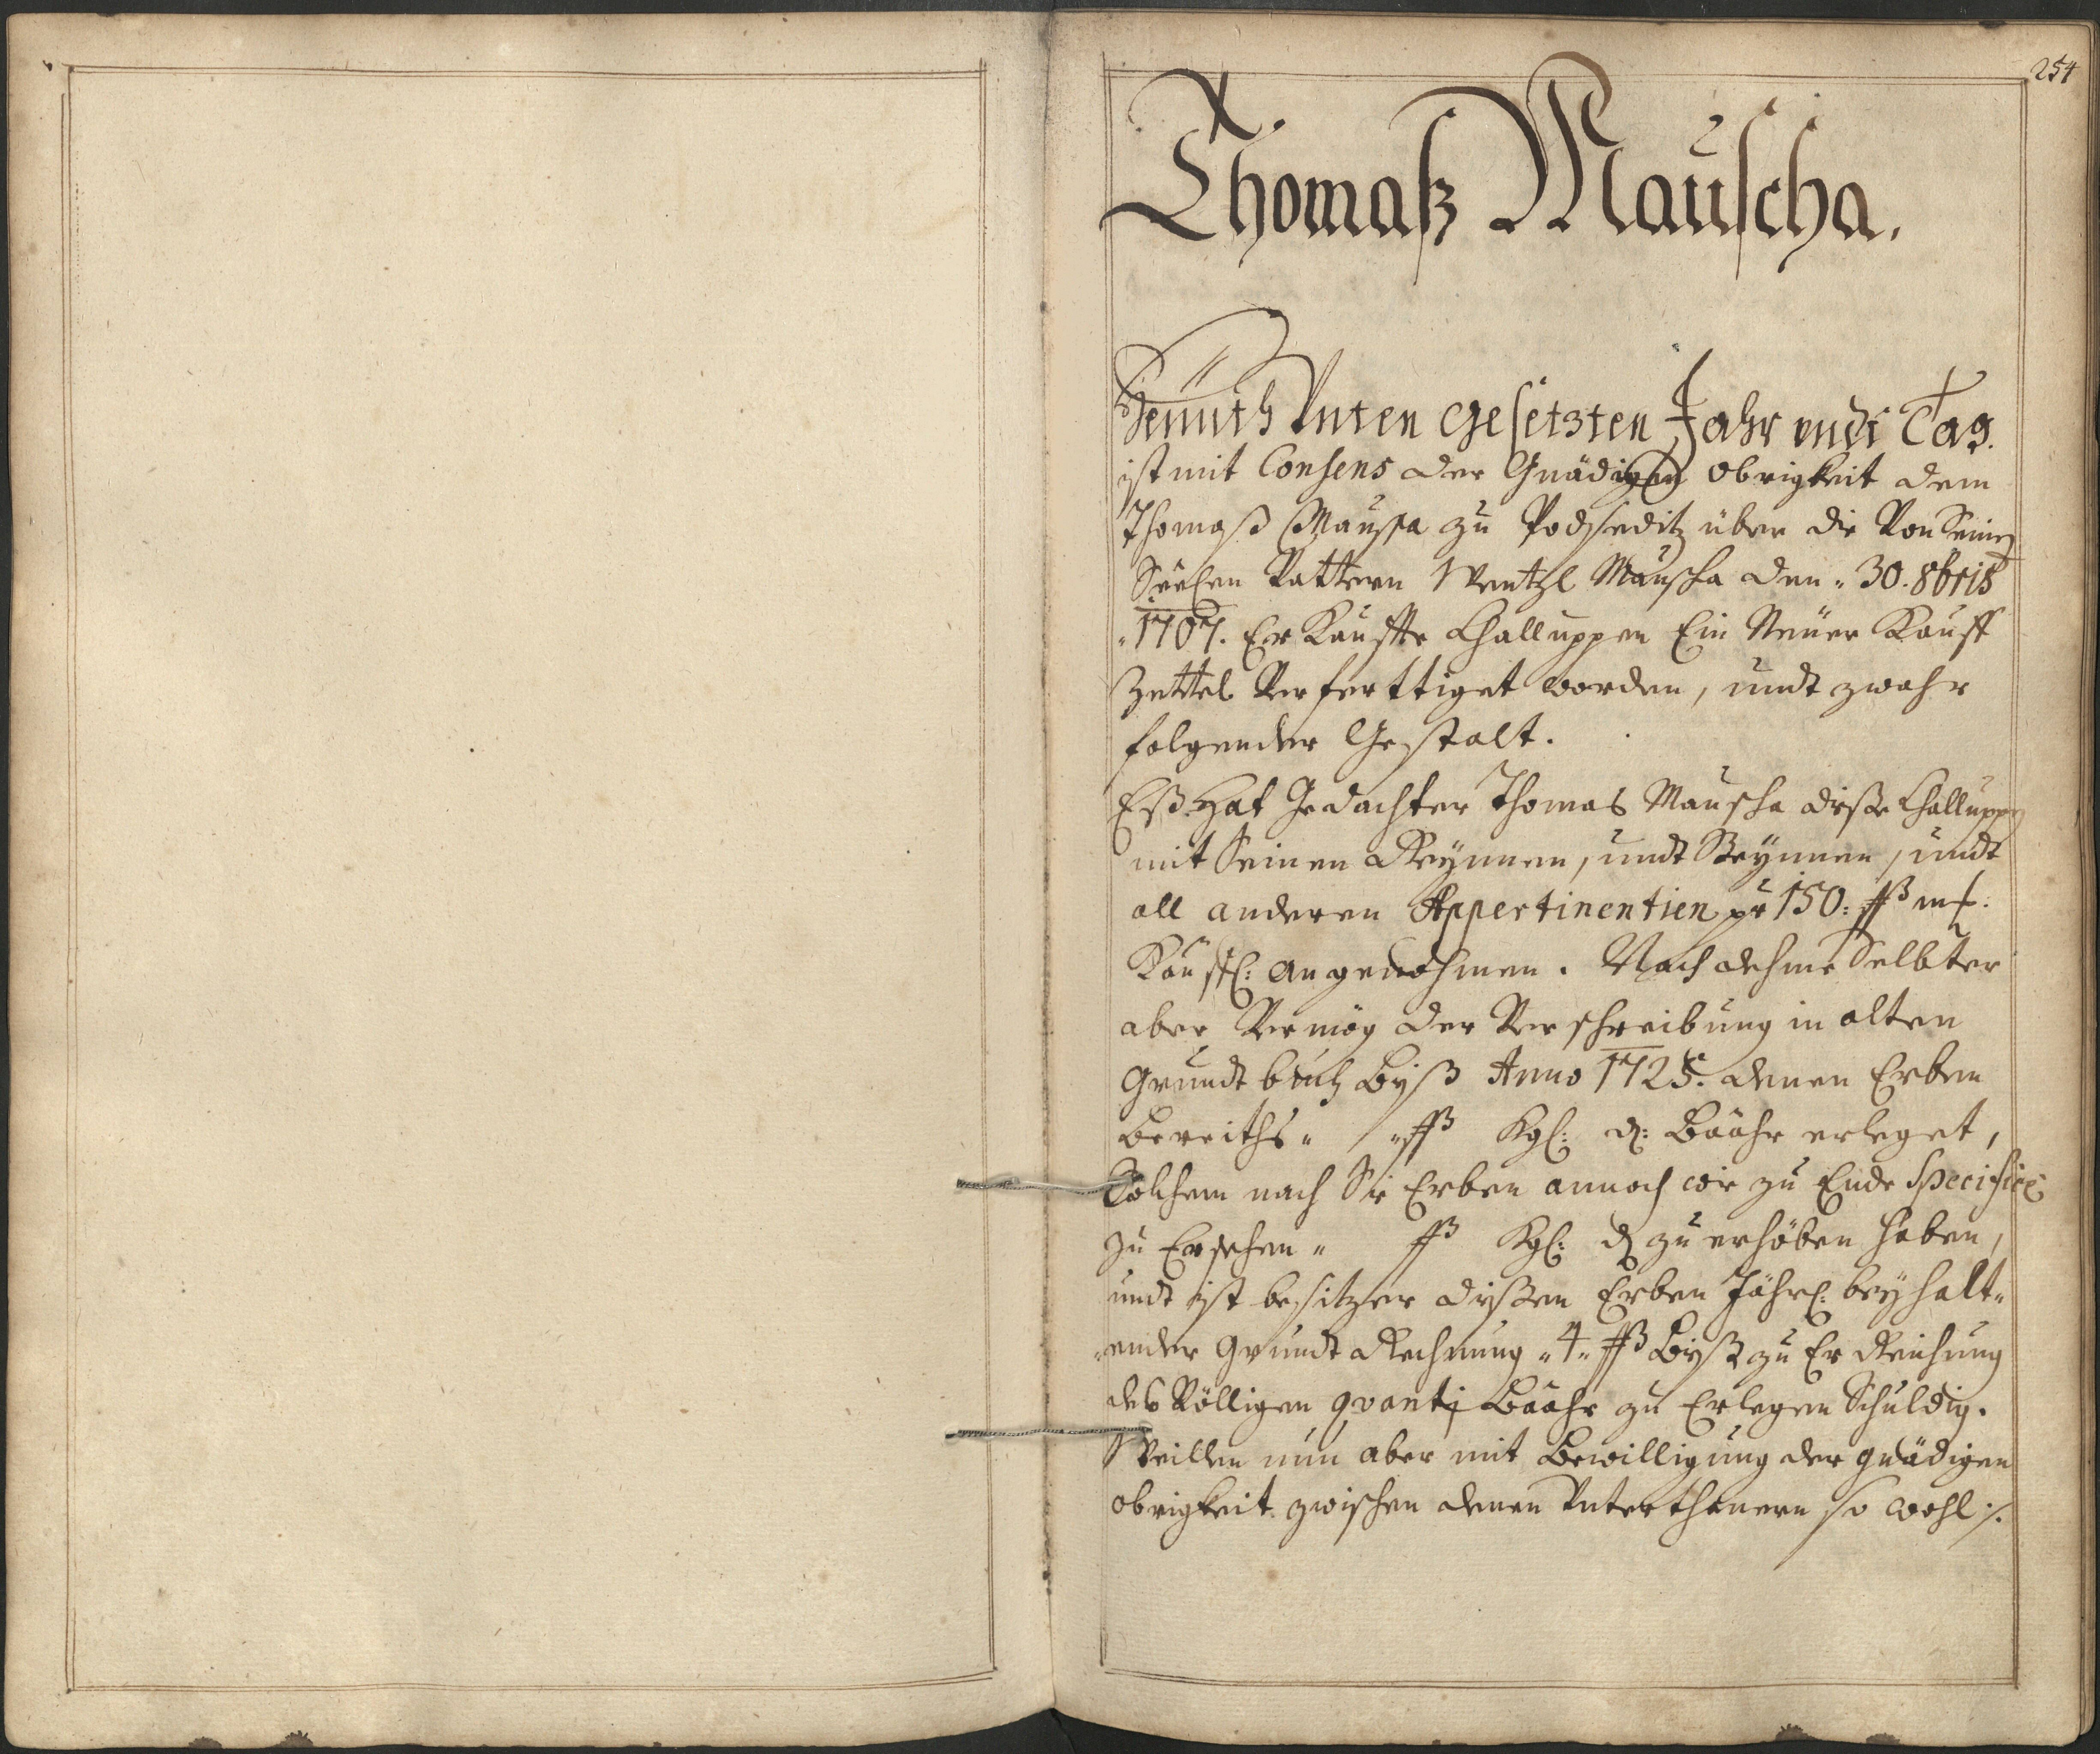 254
Thomaß Mauscha.
Heunth Unten gesetzten Jahr undt Tag.
ist mit Consens der Gnädigen Obrigkeit dem
Thomaß Mauscha zu Podseditz über die Von Seinen
Seelen Vattern Wentzl Mauscha den " 30. 8bris
" 1707. Er Kauffte Challuppen Ein Neuer Kauff
Zettel Verferttiget worden, undt zwahr
folgender Gestalt.
Eß Hat Gedachter Thomas Mauscha dieße Challuppen
mit Seinen Reynnen, undt Steynnen, undt
all anderen Appertinentien pr 150: ßß mß:
Kauffl: angenohmen. Nach dehme Selbter
aber Vermög der Verschreibung in alten
Grundt buch Byß Anno 1725. denen Erben
bereiths " " ßß Kgl: d: Baahr erleget,
Solchem nach Sie Erben annoch wie zu Ende Specifice
zu Ersehen " ßß Kgl: d zu erhöben haben,
undt ist besitzer dießen Erben Jährl: bey halt"
"ender Grundt Rechnung " 4 " ßß Byß zu Er Reichung
des Völligen quanti Baahr zu Erlegen Schuldig.
Weillen nun aber mit Bewilligung der gnädigen
obrigkeit zwischen denen Unterthanen so wohl ./.